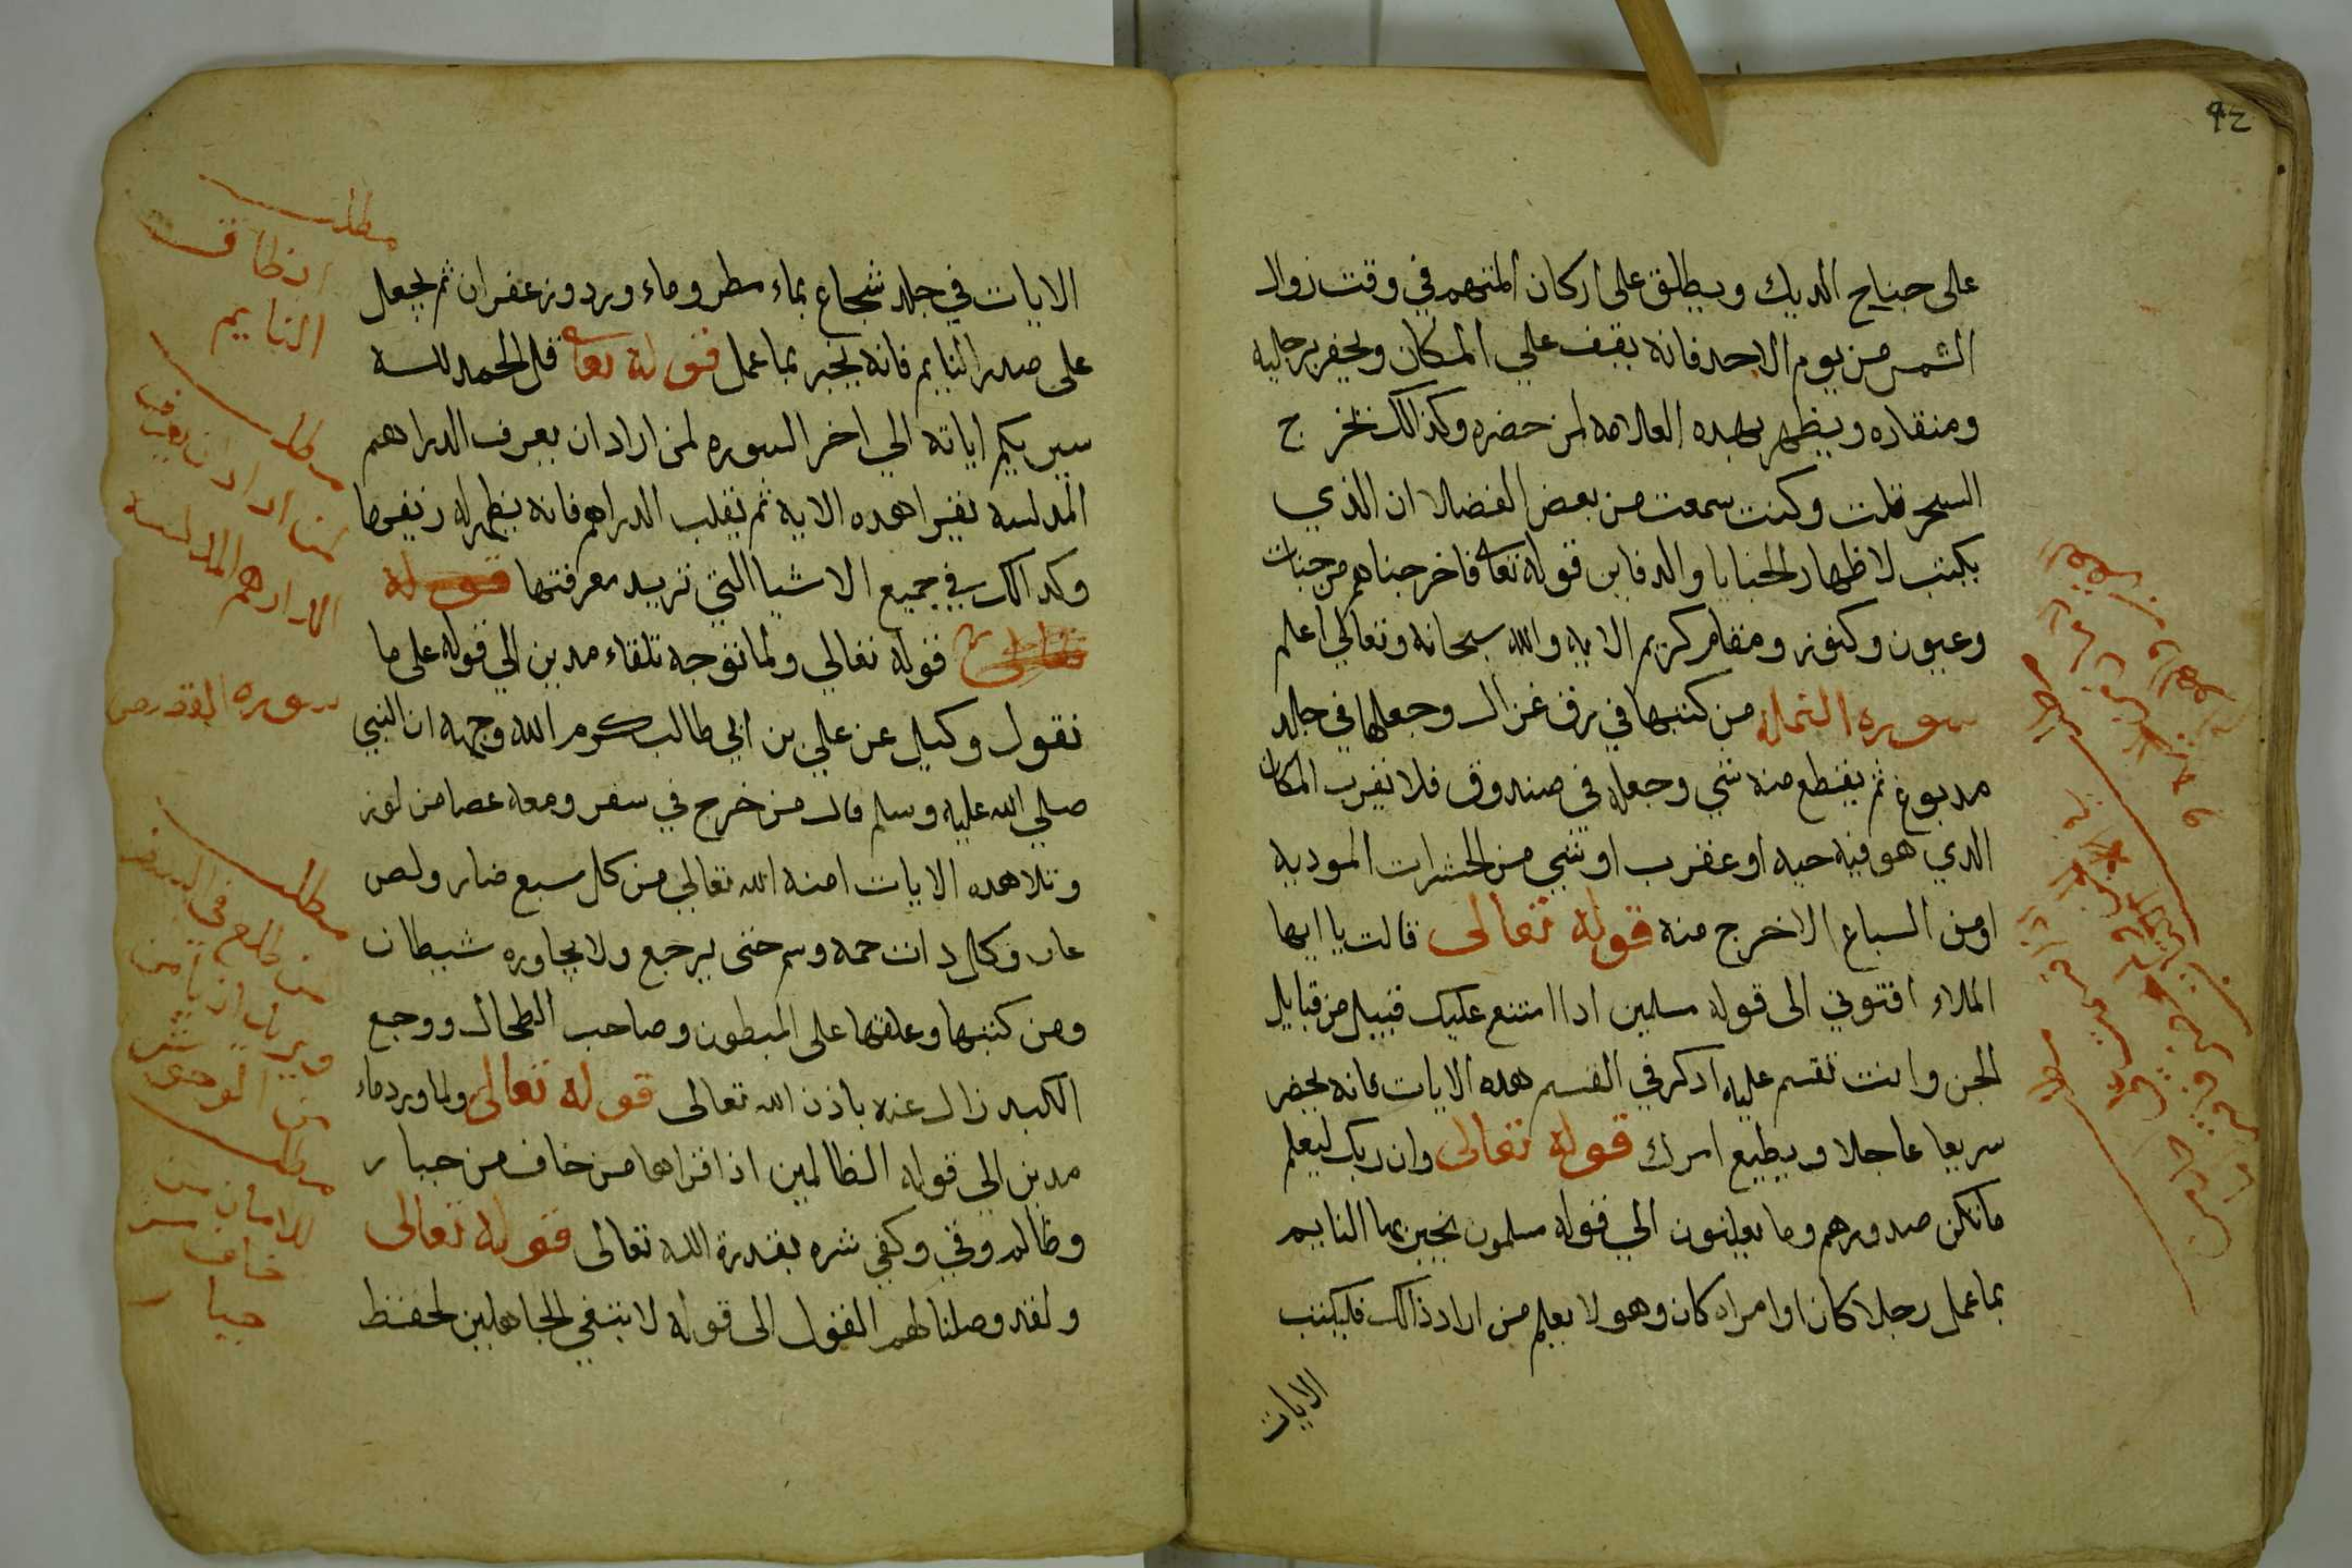 ٩٤
على جناح الديك ويطلق على اركان المتهم في وقت زوال
الشمس من يوم الاحد فانه يقف علي المكان ويحفر برجليه
ومنقاره ويظهر بهده العلامه لمن حضره وكذالك تخرج
السحر قلت وكنت سمعت من بعض الفضلا ان الذي
يكتب لاظهار الخبايا والدفاين قوله تعا فاخرجناهم من جنات
وعيون وكنوز ومقام كريم الايه والله سبحانه وتعالي اعلم
سوره النمل من كتبها في رق غزال وجعلها في جلد
مدبوغ ثم يقطع منه شي وجعله في صندوق فلا تقرب المكان
الدي هو فيه حيه او عقرب او شي من الحشرات الموديه
او من السباع الا خرج منه قوله تعالى قالت يا ايها
الملاء افتوني الى قوله مسلمين ادا امتنع عليك قبيل من قبايل
الجن وانت تقسم عليه ادكر في القسم هده الايات فانه يحضر
سريعا عاجلا ويطيع امرك قوله تعالى وان ربك ليعلم
ما تكن صدورهم وما يعلنون الي قوله مسلمون يخبر بها النايم
بما عمل رجلا كان او امراه كان وهو لا يعلم من اراد ذالك فليكتب
الايات
الايات في جلد شجاع بماء مطر وماء ورد وزعفران ثم يجعل
على صدر النايم فانه يخبر بما عمل قوله تعا قل الحمد لله
سيريكم اياته الي اخر السوره لمن اراد ان يعرف الدراهم
المدلسه تقرا هده الايه ثم تقلب الدراهم فانه يظهر له زيفها
وكدالك في جميع الاشيا التي تريد معرفتها قوله
تعالى قوله تعالي ولما توجه تلقاء مدين الي قوله على ما
نقول وكيل عن علي بن ابي طالب كرم الله وجهه ان النبي
صلي الله عليه وسلم قال من خرج في سفر ومعه عصا من لوز
وتلا هده الايات امنه الله تعالي من كل سبع ضار ولص
عاد وكل دات حمه وسم حتى يرجع ولا يجاوره شيطان
ومن كتبها وعلقها على المبطون وصاحب الطحال ووجع
الكبد زال عنه باذن الله تعالى قوله تعالى ولما ورد ماء
مدين الي قوله الظالمين اذا قراها من خاف من جبار
وظالم وقي وكفي شره بقدرة الله تعالى قوله تعالى
ولقد وصلنا لهم القول الى قوله لا نبتغي الجاهلين لحفظ
مطلب
انطاق
النايم
مطلب
لمن اراد ان يعرف
الدراهم المدلسه
سوره القصص
مطلب
من طلع في السفر
ويريد ان يامن
من الوحوش
مطلب
للامان من
خاف من
جبار